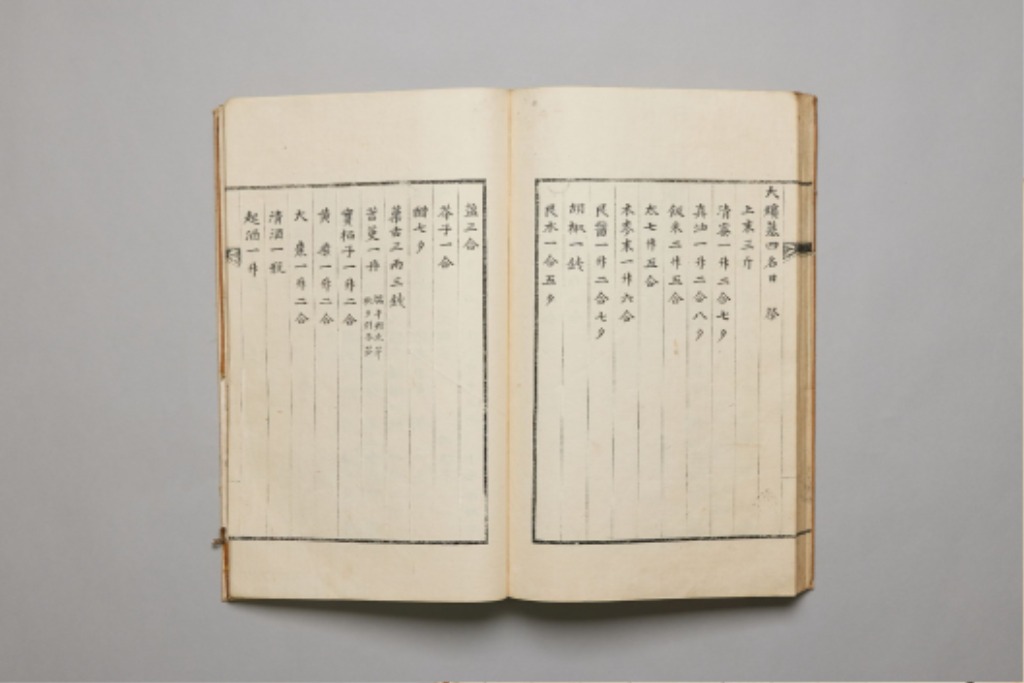 大殯墓四名日 祭
上末三斤
清蜜一升三合七夕
真油一升二合八夕
飯米二升五合
太七升五合
木麥末一升六合
艮醬一升二合七夕
胡椒一錢
艮水一合五夕
塩三合
芥子一合
醋七夕
藁古三兩三錢
苔蔓一丹
實栢子一升二合
黄 一升二合
大 一升二合
清酒一瓶
起酒一升